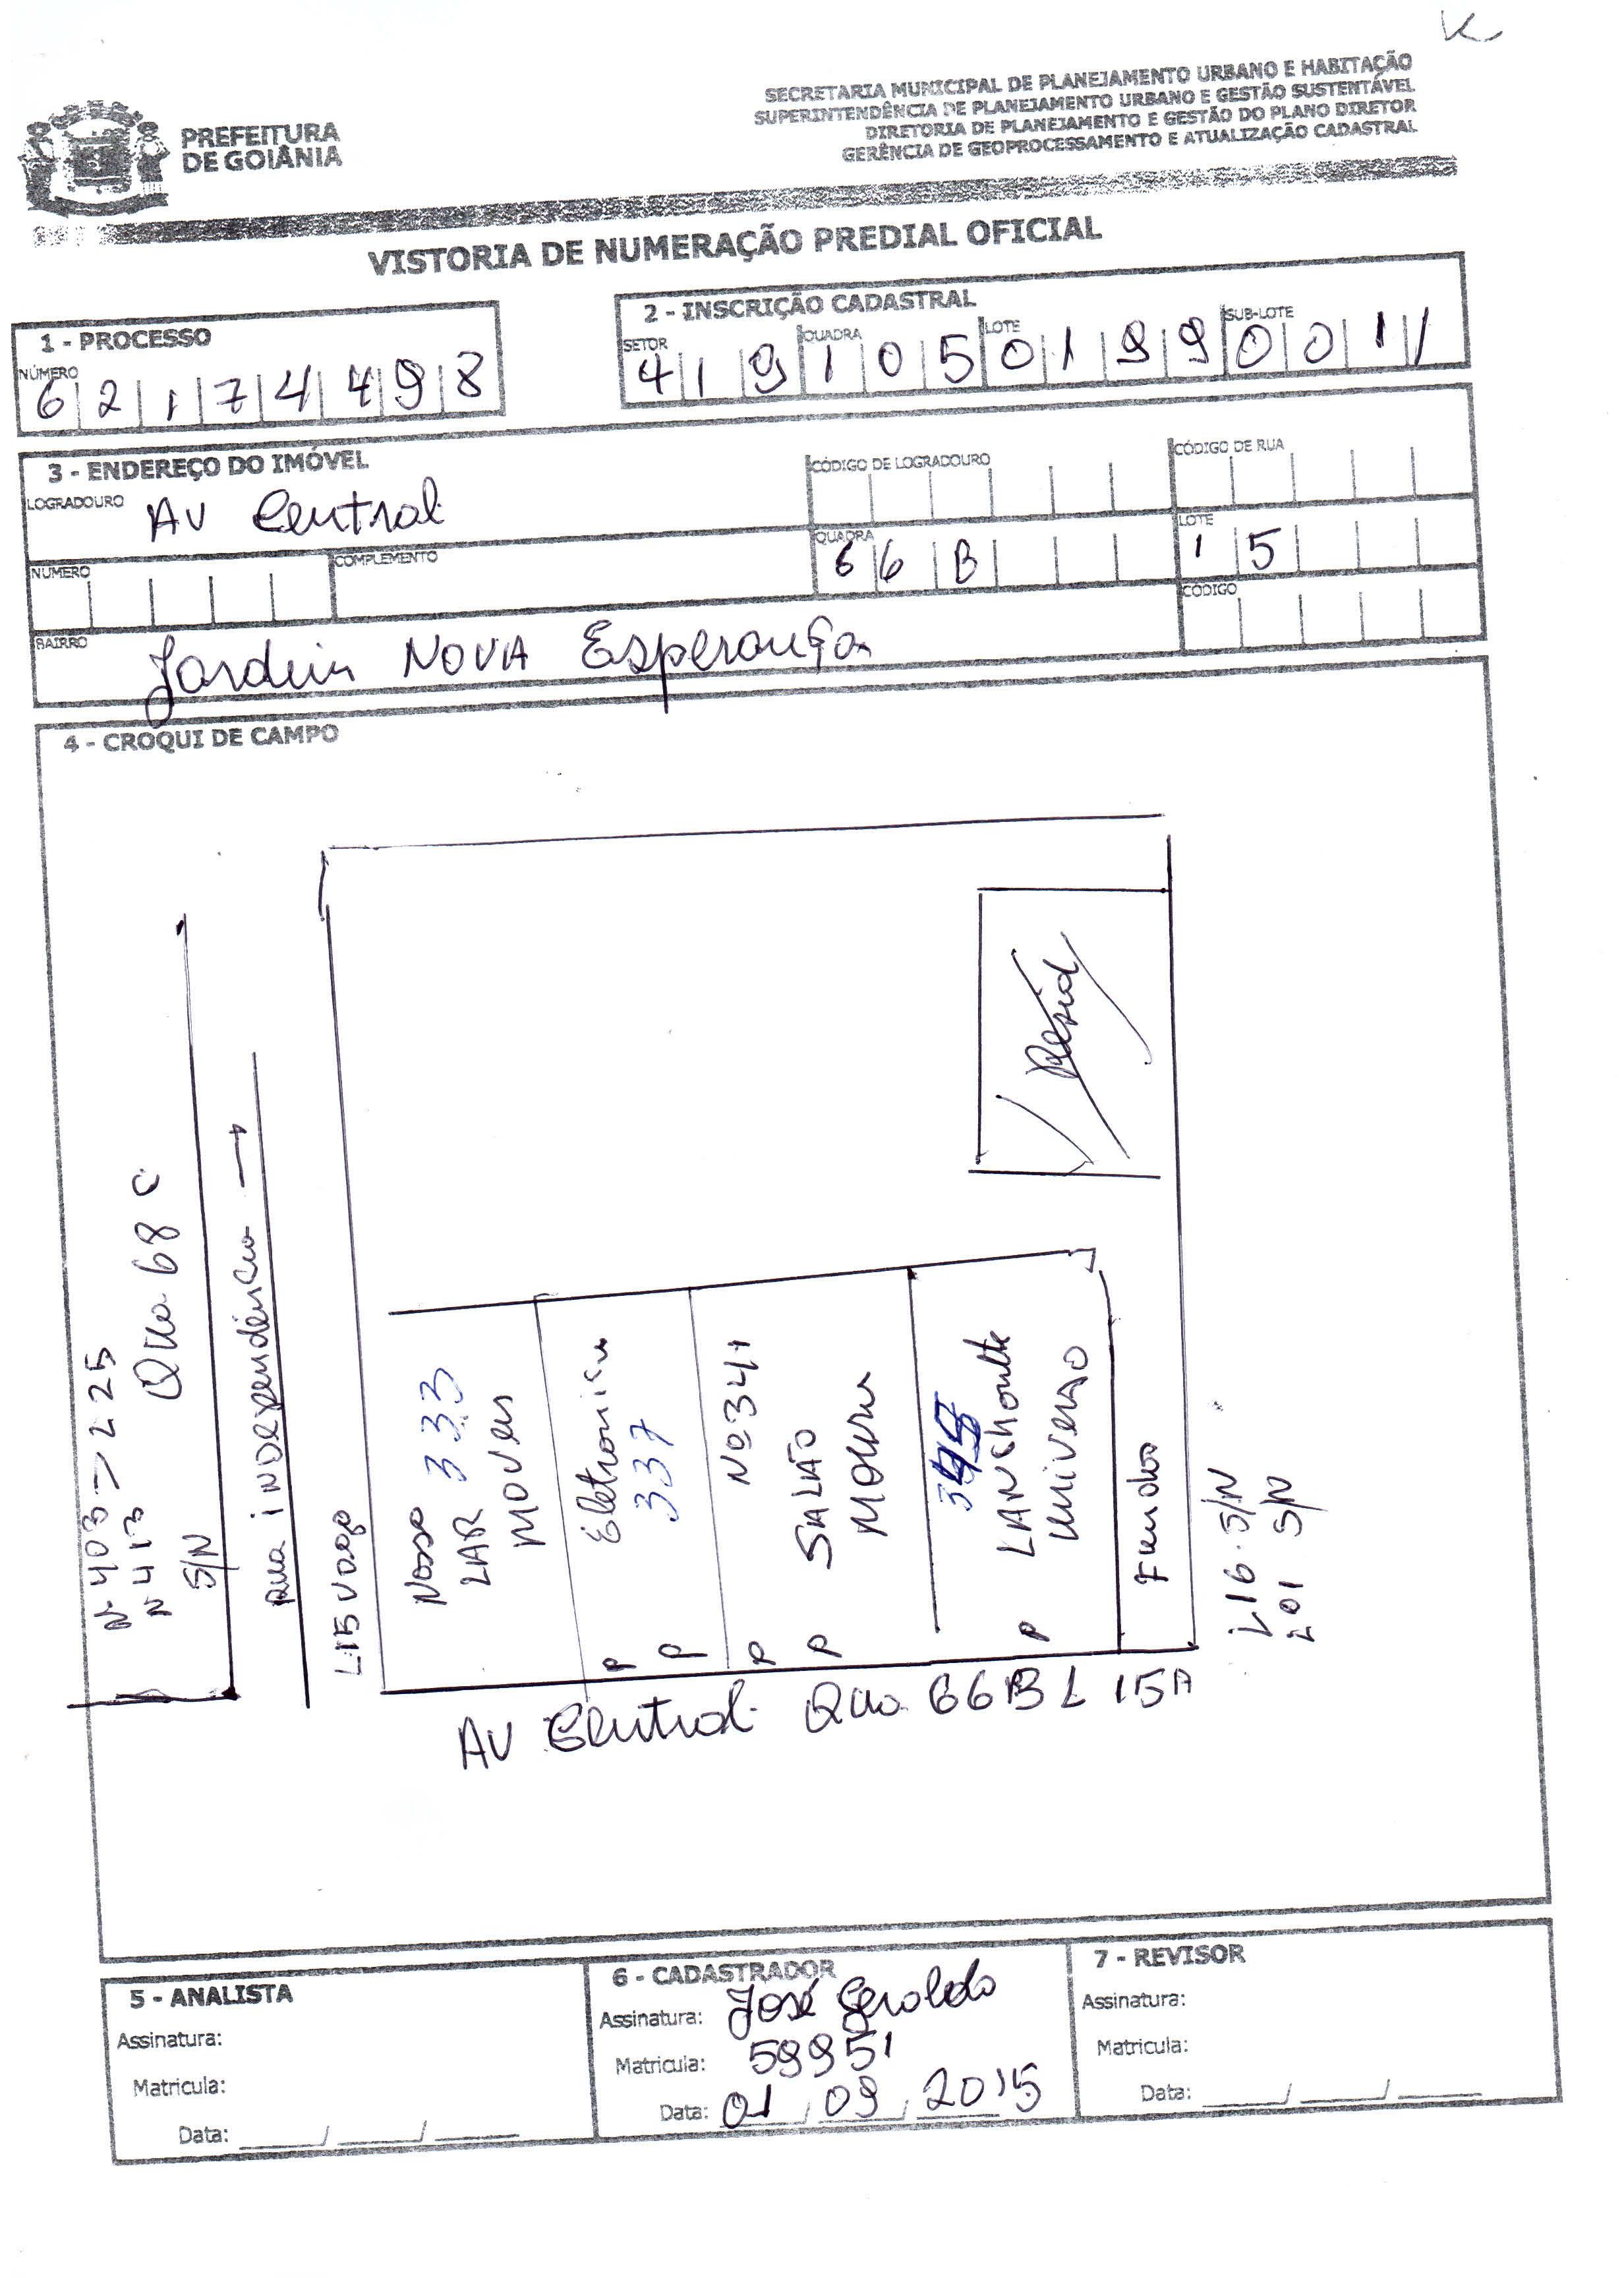 SECRETARIA MUNICIPAL DE PLANEJAMENTO URBANO E HABITAÇÃO
SUPERINTENDÊNCIA DE PLANEJAMENTO URBANO E GESTÃO SUSTENTÁVEL
DIRETORIA DE PLANEJAMENTO E GESTÃO DO PLANO DIRETOR
GERÊNCIA DE GEOPROCESSAMENTO E ATUALIZAÇÃO CADASTRAL
PREFEITURA
DE GOIÂNIA
VISTORIA DE NUMERAÇÃO PREDIAL OFICIAL
1 - PROCESSO
NÚMERO
6 2 1 7 4 4 9 8
2 - INSCRIÇÃO CADASTRAL
SETOR QUADRA LOTE SUB-LOTE
4 1 9 1 0 5 0 1 9 9 0 0 1 /
3 - ENDEREÇO DO IMÓVEL
LOGRADOURO AV Central
CÓDIGO DE LOGRADOURO
CÓDIGO DE RUA
NÚMERO
COMPLEMENTO
QUADRA 6 6 B
LOTE 1 5
BAIRRO Jardim NOVA Esperança
CÓDIGO
4 - CROQUI DE CAMPO
Nº 403 -> 225
Nº 413 Qda 68 C
S/N
Rua independência →
L15 vago
Nosso 333
LAR
MOVEIS
Eletronica
337
Nº 341
SALÃO
345
LANCHONETE
UNIVERSO
Fundos
Resid
P
P
P
P
P
L16 S/N
L01 S/N
AV Central Qda 66B L 15A
5 - ANALISTA
Assinatura:
Matricula:
Data: ____/____/____
6 - CADASTRADOR
Assinatura: José Geraldo
Matricula: 59951
Data: 01/09/2015
7 - REVISOR
Assinatura:
Matricula:
Data: ____/____/____